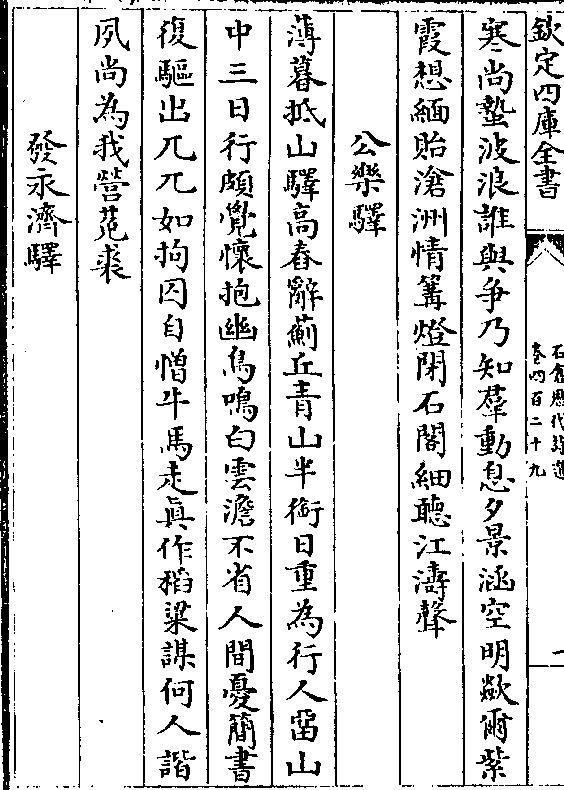 欽定四庫全書
石倉歷代詩選
卷四百二十九
一
寒尚蟄波浪誰與爭乃知羣動息夕景涵空明歘爾紫
霞想緬貽滄洲情篝燈閉石閣細聽江濤聲
公樂驛
薄暮抵山驛高舂辭薊丘青山半銜日重為行人留山
中三日行頗覺懷抱幽鳥鳴白雲澹不省人間憂簡書
復驅出兀兀如拘囚自憎牛馬走真作稻粱謀何人諧
夙尚為我營菟裘
發永濟驛